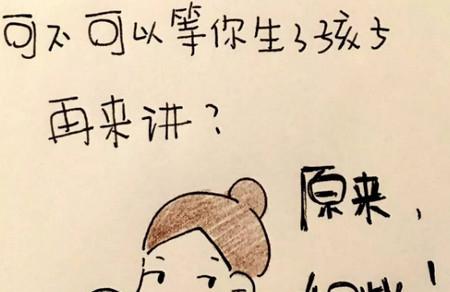 可不可以等你生了孩子
再来讲？
原来，